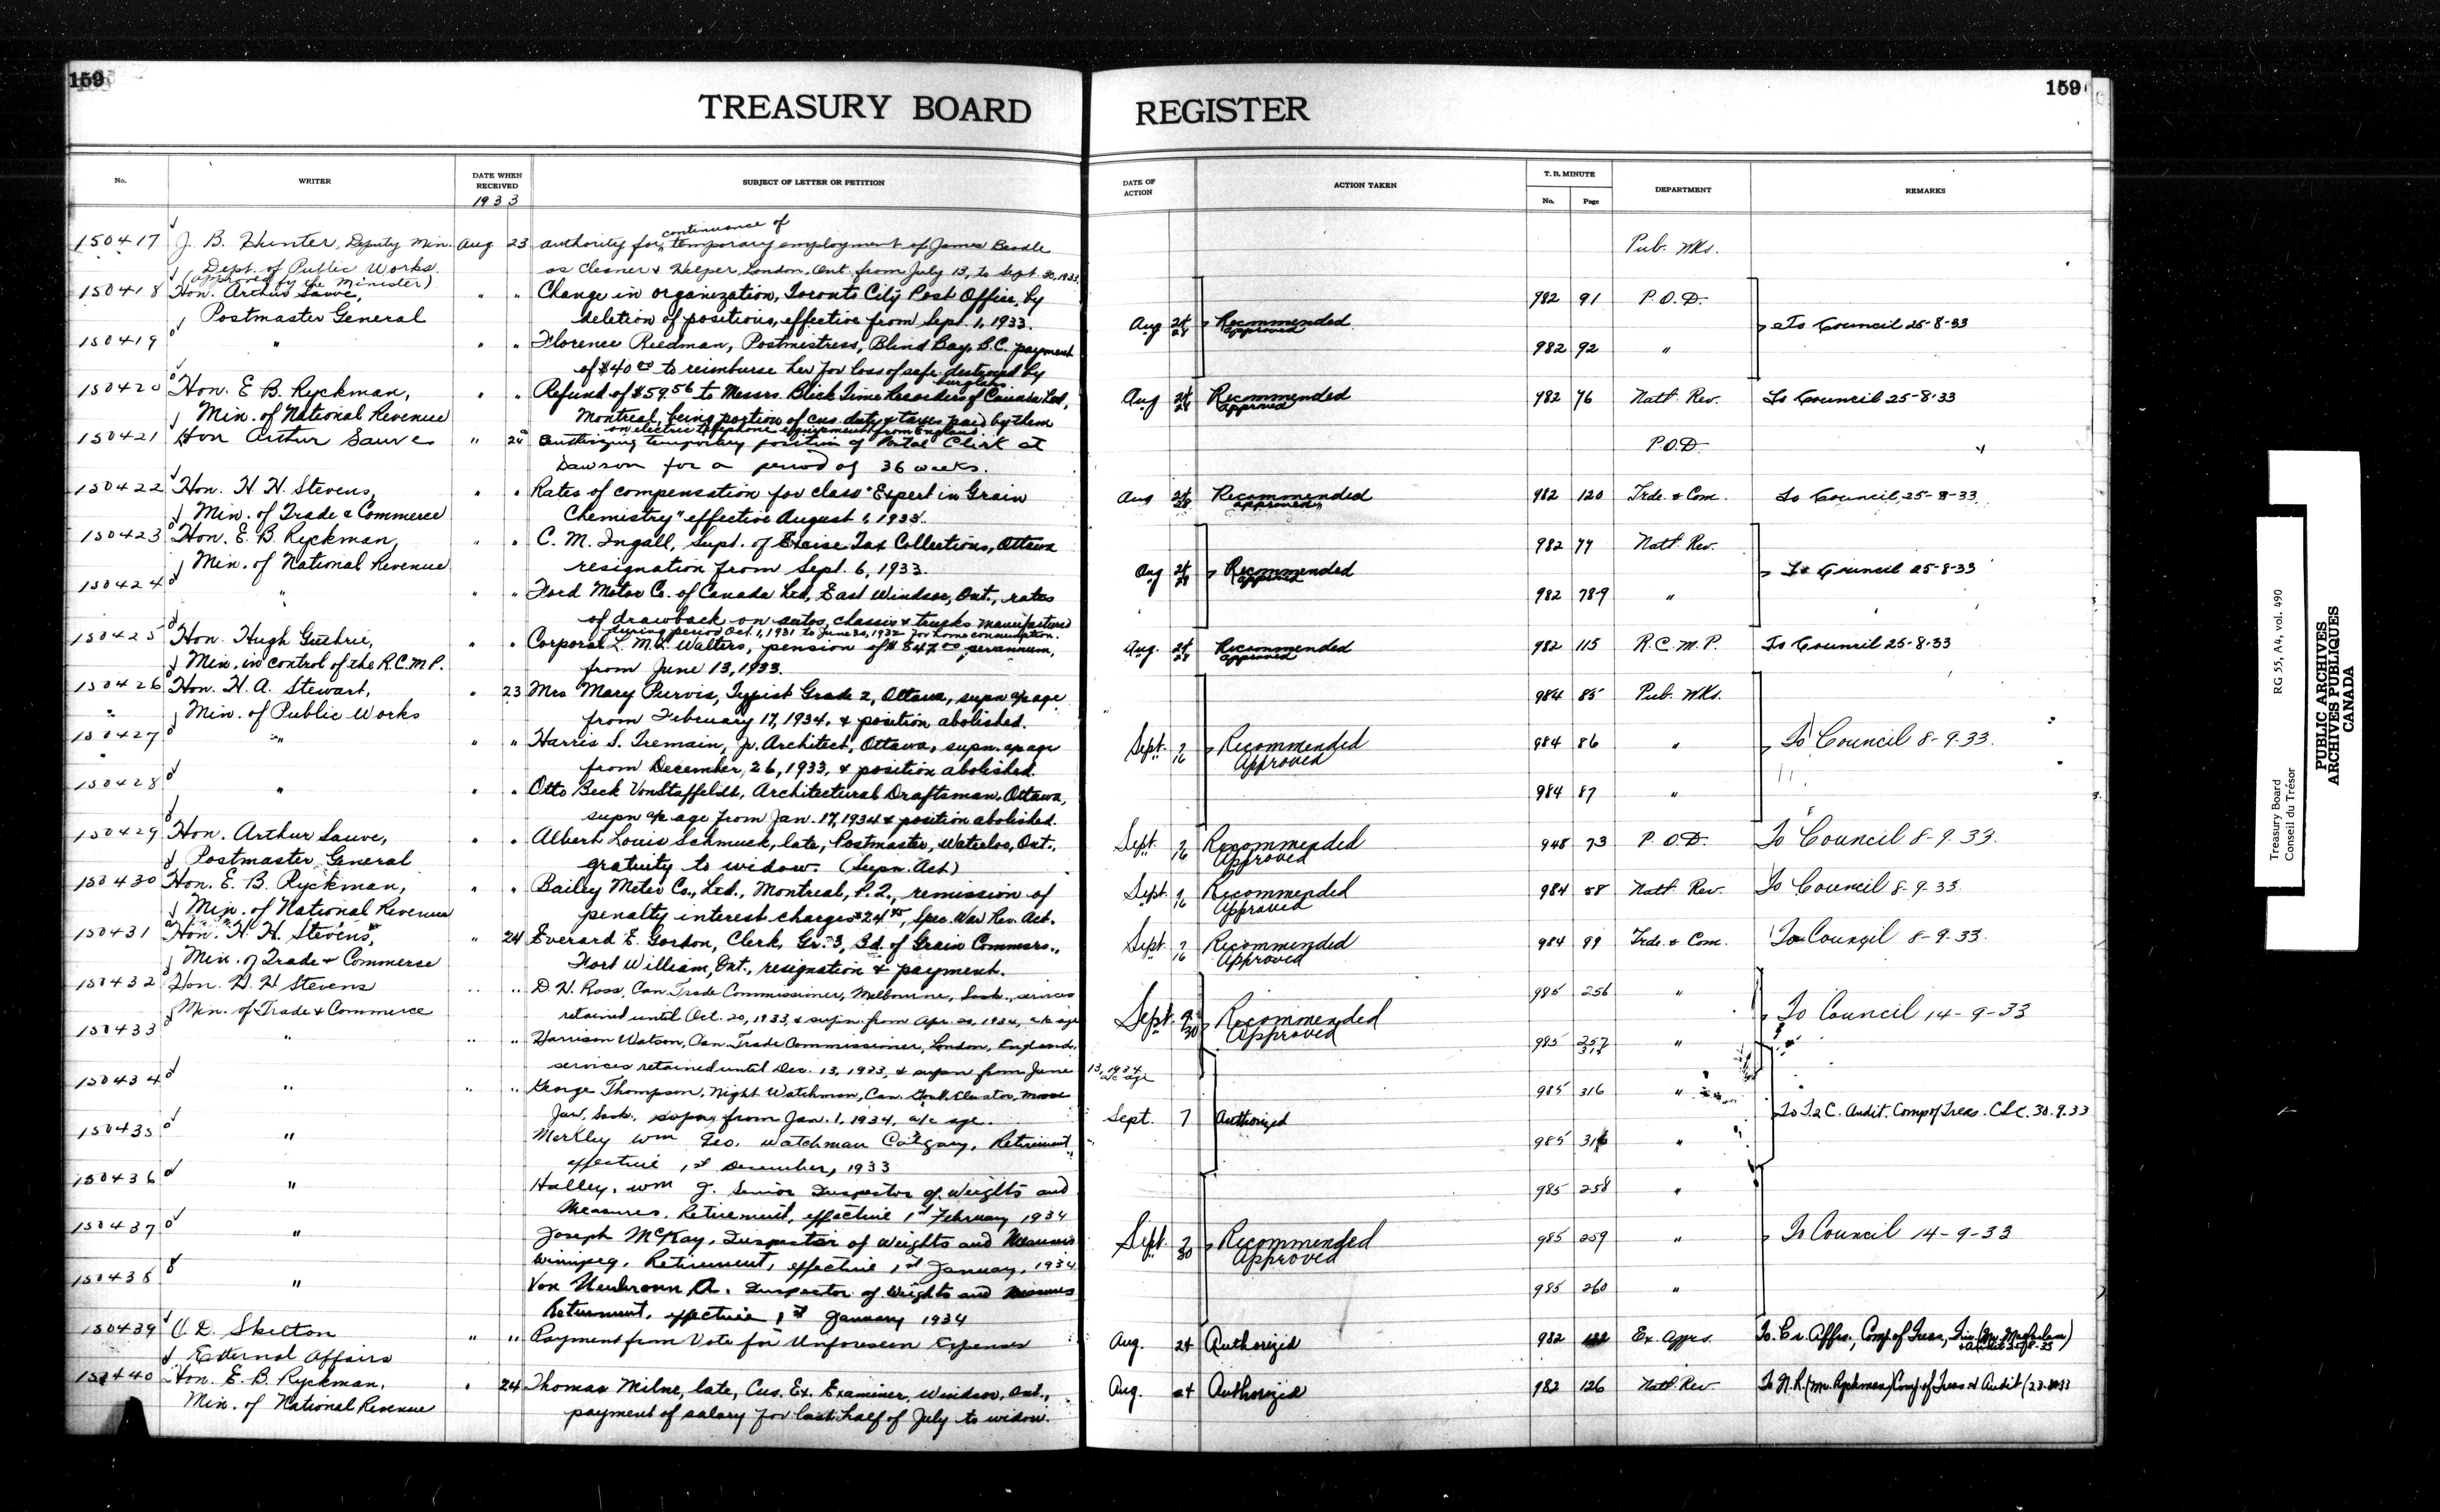 159
TREASURY BOARD
REGISTER
159
No.
WRITER
DATE WHEN RECEIVED
1933
SUBJECT OF LETTER OR PETITION
DATE OF ACTION
ACTION TAKEN
T. B. MINUTE
No.
Page
DEPARTMENT
REMARKS
continuance of
150417 J. B. Hunter, Deputy Min. Aug 23 authority for temporary employment of James Beadle Pub. Wks.
Dept. of Public Works. as Cleaner & Helper, London, Ont. from July 13, to Sept. 30, 1933.
(approved by the Minister)
150418 Hon. Arthur Sauve, " " Change in organization, Toronto City Post Office, by 982 91 P.O.D.
Postmaster General deletion of positions, effective from Sept. 1, 1933.
Aug 24/28 Recommended approved To Council 25-8-33
150419 " " " Florence Reedman, Postmistress, Blind Bay, B.C. payment 982 92 "
of $40.00 to reimburse her for loss of safe destroyed by
burglars
150420 Hon. E. B. Ryckman, " " Refund of $59.56 to Messrs. Blick Time Recorders of Canada Ltd, Aug 24/28 Recommended approved 982 76 Natl. Rev. To Council 25-8-33
Min. of National Revenue Montreal, being portion of cus. duty & taxes paid by them
on electric telephone equipment from England
150421 Hon Arthur Sauve " 24 authorizing temporary position of Postal Clerk at P.O.D.
Dawson for a period of 36 weeks.
150422 Hon. H. H. Stevens, " " Rates of compensation for class "Expert in Grain Aug 24/28 Recommended approved 982 120 Trde. & Com. To Council, 25-8-33
Min. of Trade & Commerce Chemistry" effective August 1, 1933.
150423 Hon. E. B. Ryckman, " " C. M. Ingall, Supt. of Excise Tax Collections, Ottawa 982 77 Natl. Rev.
Min. of National Revenue resignation from Sept. 6, 1933.
Aug 24/28 Recommended approved To Council 25-8-33
150424 " " " Ford Motor Co. of Canada Ltd, East Windsor, Ont., rates 982 78-9 "
of drawback on autos, chassis & trucks manufactured
during period Oct. 1, 1931 to June 30, 1932 for home consumption.
150425 Hon. Hugh Guthrie, " " Corporal L. M. C. Walters, pension of $847.00 per annum, Aug. 24/28 Recommended approved 982 115 R.C.M.P. To Council 25-8-33
Min. in control of the R.C.M.P. from June 13, 1933.
150426 Hon. H. A. Stewart, " 23 Mrs Mary Purvis, Typist Grade 2, Ottawa, supn a/c age 984 85 Pub. Wks.
Min. of Public Works from February 17, 1934, & position abolished.
150427 " " " Harris S. Tremain, Jr. Architect, Ottawa, supn. a/c age Sept. 7/16 Recommended Approved 984 86 " To Council 8-9-33.
from December, 26, 1933, & position abolished.
150428 " " " Otto Beck VonStaffeldt, Architectural Draftsman, Ottawa, 984 87 "
supn a/c age from Jan. 17, 1934 & position abolished.
150429 Hon. Arthur Sauve, " " Albert Louis Schmuck, late, Postmaster, Waterloo, Ont., Sept. 7/16 Recommended Approved 948 73 P.O.D. To Council 8-9-33.
Postmaster General gratuity to widow. (Supn. Act)
150430 Hon. E. B. Ryckman, " " Bailey Meter Co., Ltd., Montreal, P.Q., remission of Sept 7/16 Recommended Approved 984 58 Natl. Rev. To Council 8-9-33.
Min. of National Revenue penalty interest charges $24.45, Spec. War Rev. Act.
150431 Hon. H. H. Stevens, " 24 Everard E. Gordon, Clerk, Gr. 3, Bd. of Grain Commrs., Sept 7/16 Recommended Approved 984 99 Trde. & Com. To Council 8-9-33.
Min. of Trade & Commerce Fort William, Ont., resignation & payment.
150432 Hon. H. H Stevens " " D. H. Ross, Can. Trade Commissioner, Melbourne, services 985 256 "
Min. of Trade & Commerce retained until Oct. 20, 1933, & supn. from Apr. 20, 1934, a/c age
Sept. 9/30 Recommended Approved To Council 14-9-33
150433 " " " Harrison Watson, Can. Trade Commissioner, London, England, 985 257 315 "
services retained until Dec. 13, 1933, & supn from June 13, 1934 a/c age
150434 " " " George Thompson, Night Watchman, Can. Govt. Elevator, Moose 985 316 "
Jaw, Sask. supn. from Jan. 1, 1934, a/c age.
Sept. 7 Authorized To T & C. Audit. Comp of Treas. C.S.C. 30.9.33
150435 " Merkley Wm Geo. Watchman Calgary, Retirement 985 316 "
effective 1st December, 1933
150436 " Halley, Wm J. Senior Inspector of Weights and 985 258 "
Measures. Retirement, effective 1st February 1934
150437 " Joseph McKay, Inspector of Weights and Measures Sept. 7/30 Recommended Approved 985 259 " To Council 14-9-33
Winnipeg. Retirement, effective 1st January, 1934
150438 " Von Neubronn A. Inspector of Weights and Measures 985 260 "
Retirement, effective 1st January 1934
150439 O. D. Skelton " " Payment from Vote for Unforeseen Expenses Aug. 24 Authorized 982 Ex. Affrs. To Ex. Affrs., Comp of Treas,
External Affairs
150440 Hon. E. B. Ryckman, " 24 Thomas Milne, late, Cus. Ex. Examiner, Windsor, Ont., Aug. 24 Authorized 982 126 Natl. Rev. To N.R. (Mr. Ryckman) Comp. of Treas & Audit
Min. of National Revenue payment of salary for last half of July to widow.
Treasury Board
Conseil du Trésor
RG 55, A4, vol. 490
PUBLIC ARCHIVES
ARCHIVES PUBLIQUES
CANADA